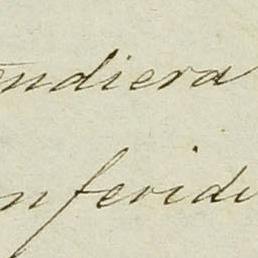 endiera
nferidi